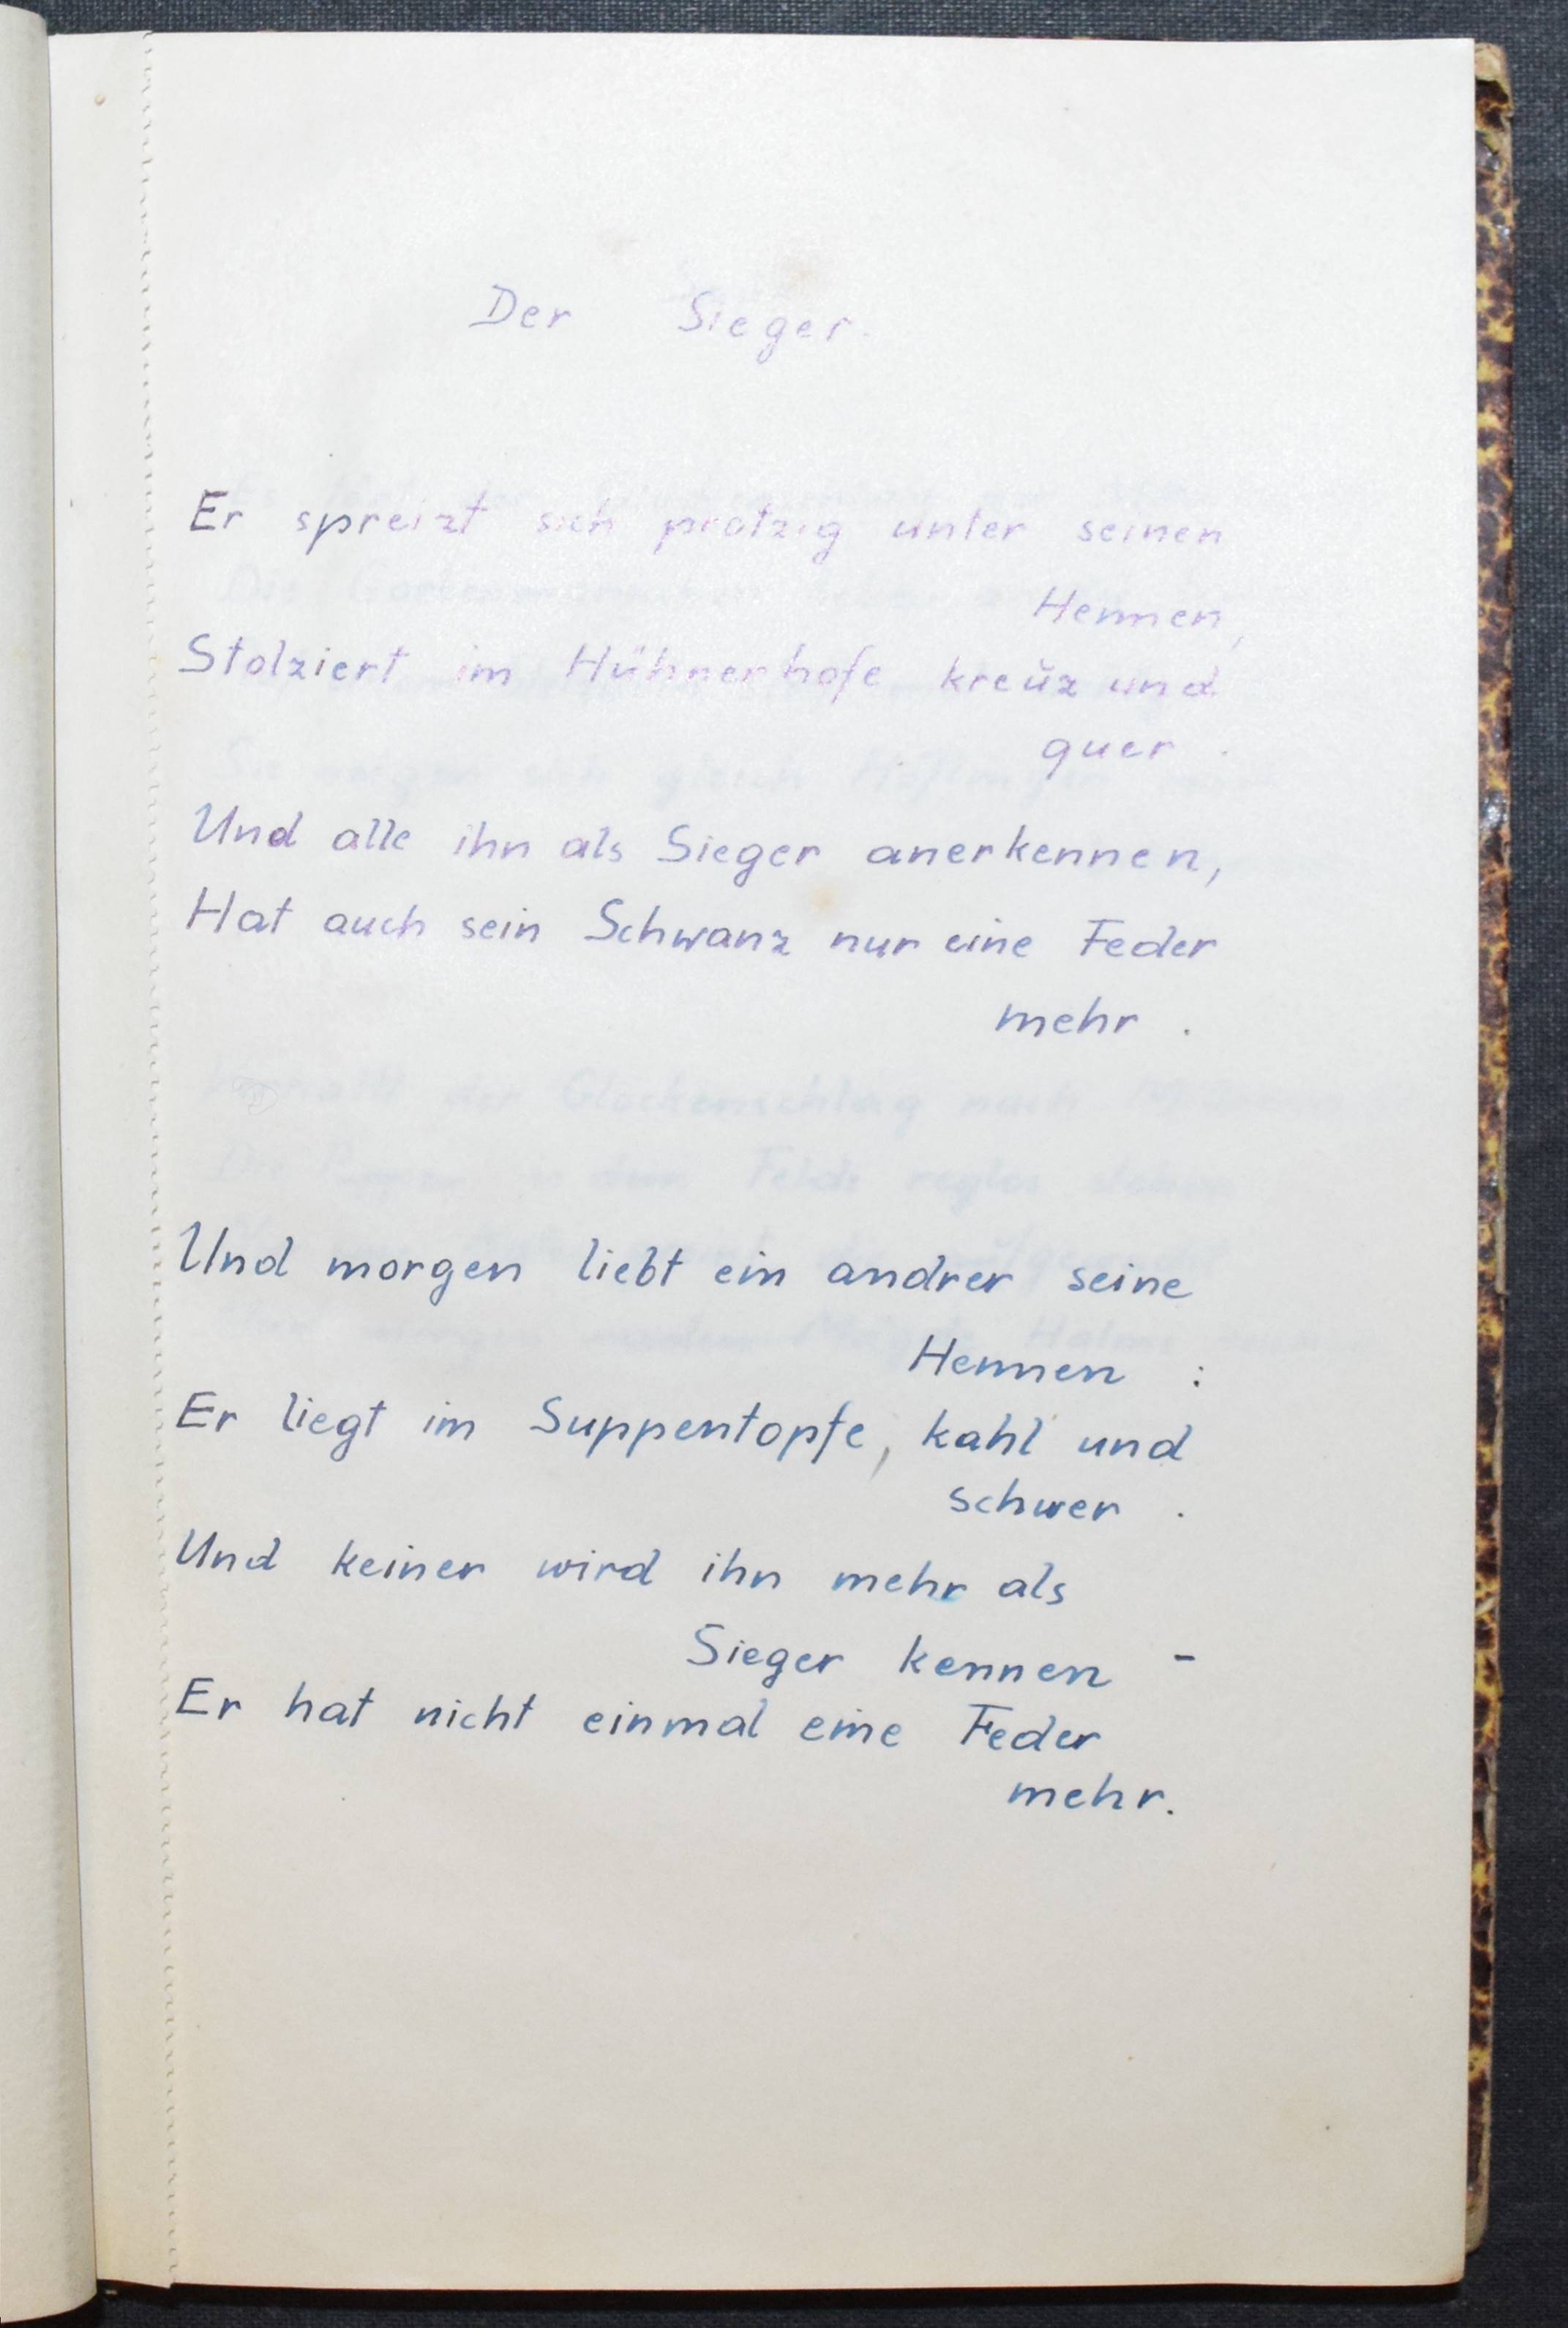 Der Sieger.
Er spreizt sich protzig unter seinen
Hennen,
Stolziert im Hühnerhofe kreŭz und
quer.
Und alle ihn als Sieger anerkennen,
Hat auch sein Schwanz nur eine Feder
mehr.
Und morgen liebt ein andrer seine
Hennen:
Er liegt im Suppentopfe, kahl und
schwer.
Und keiner wird ihn mehr als
Sieger kennen -
Er hat nicht einmal eine Feder
mehr.